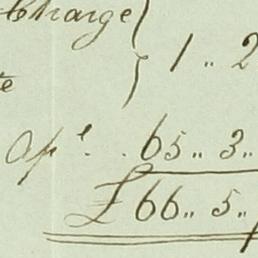 Charge
1 .. 2
te
65 .. 3 ..
£66 .. 5 ..